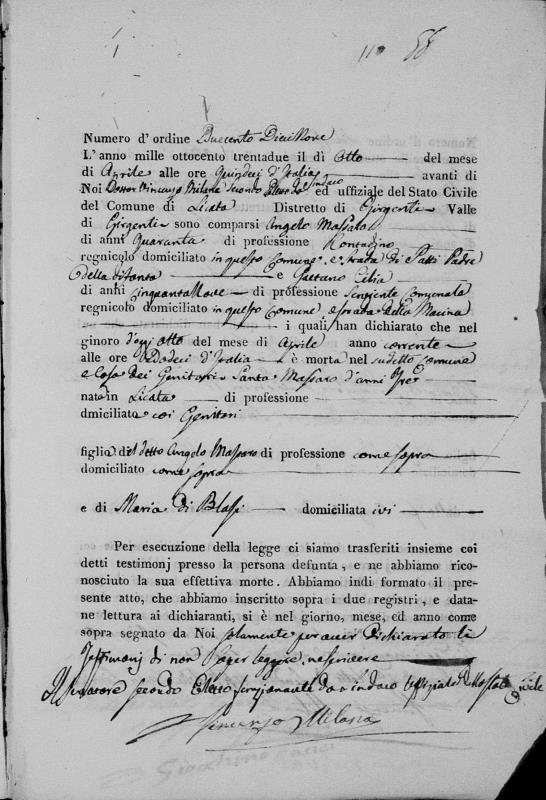 118 88
Numero d'ordine Duecento DiciNove
L'anno mille ottocento trentadue il dì Otto del mese
di Aprile alle ore Quindeci d'Italia avanti di
Noi Dottor Vincenzo Milana Secondo Eletto Sindaco ed uffiziale del Stato Civile
del Comune di Licata Distretto di Girgenti Valle
di Girgenti sono comparsi Angelo Massaro
di anni Quaranta di professione Contadino
regnicolo domiciliato in questo Comune, e strada di Patti Padre
della e Gaetano Cilia
di anni CinquantaNove di professione Serviente Comunale
regnicolo domiciliato in questo Comune e strada della Macina
i quali han dichiarato che nel
ginoro d'oggi Otto del mese di Aprile anno corrente
alle ore d'Italia è morta nel sudetto Comune
e Casa dei Genitori Santa Massaro d'anni Tre
nato in Licata di professione
dmiciliato coi Genitori
figlia di detto Angelo Massaro di professione come sopra
domiciliato come sopra
e di Maria Di Blasi domiciliata ivi
Per esecuzione della legge ci siamo trasferiti insieme coi
detti testimonj presso la persona defunta, e ne abbiamo rico-
nosciuto la sua effettiva morte. Abbiamo indi formato il pre-
sente atto, che abbiamo inscritto sopra i due registri, e data-
ne lettura ai dichiaranti, si è nel giorno, mese, ed anno come
sopra segnato da Noi solamente per aver dichiarato li
Testimonj di non saper leggere, ne scrivere
Il Secondo Eletto funzionante da Sindaco Uffiziale dello Stato Civile
Vincenzo Milana